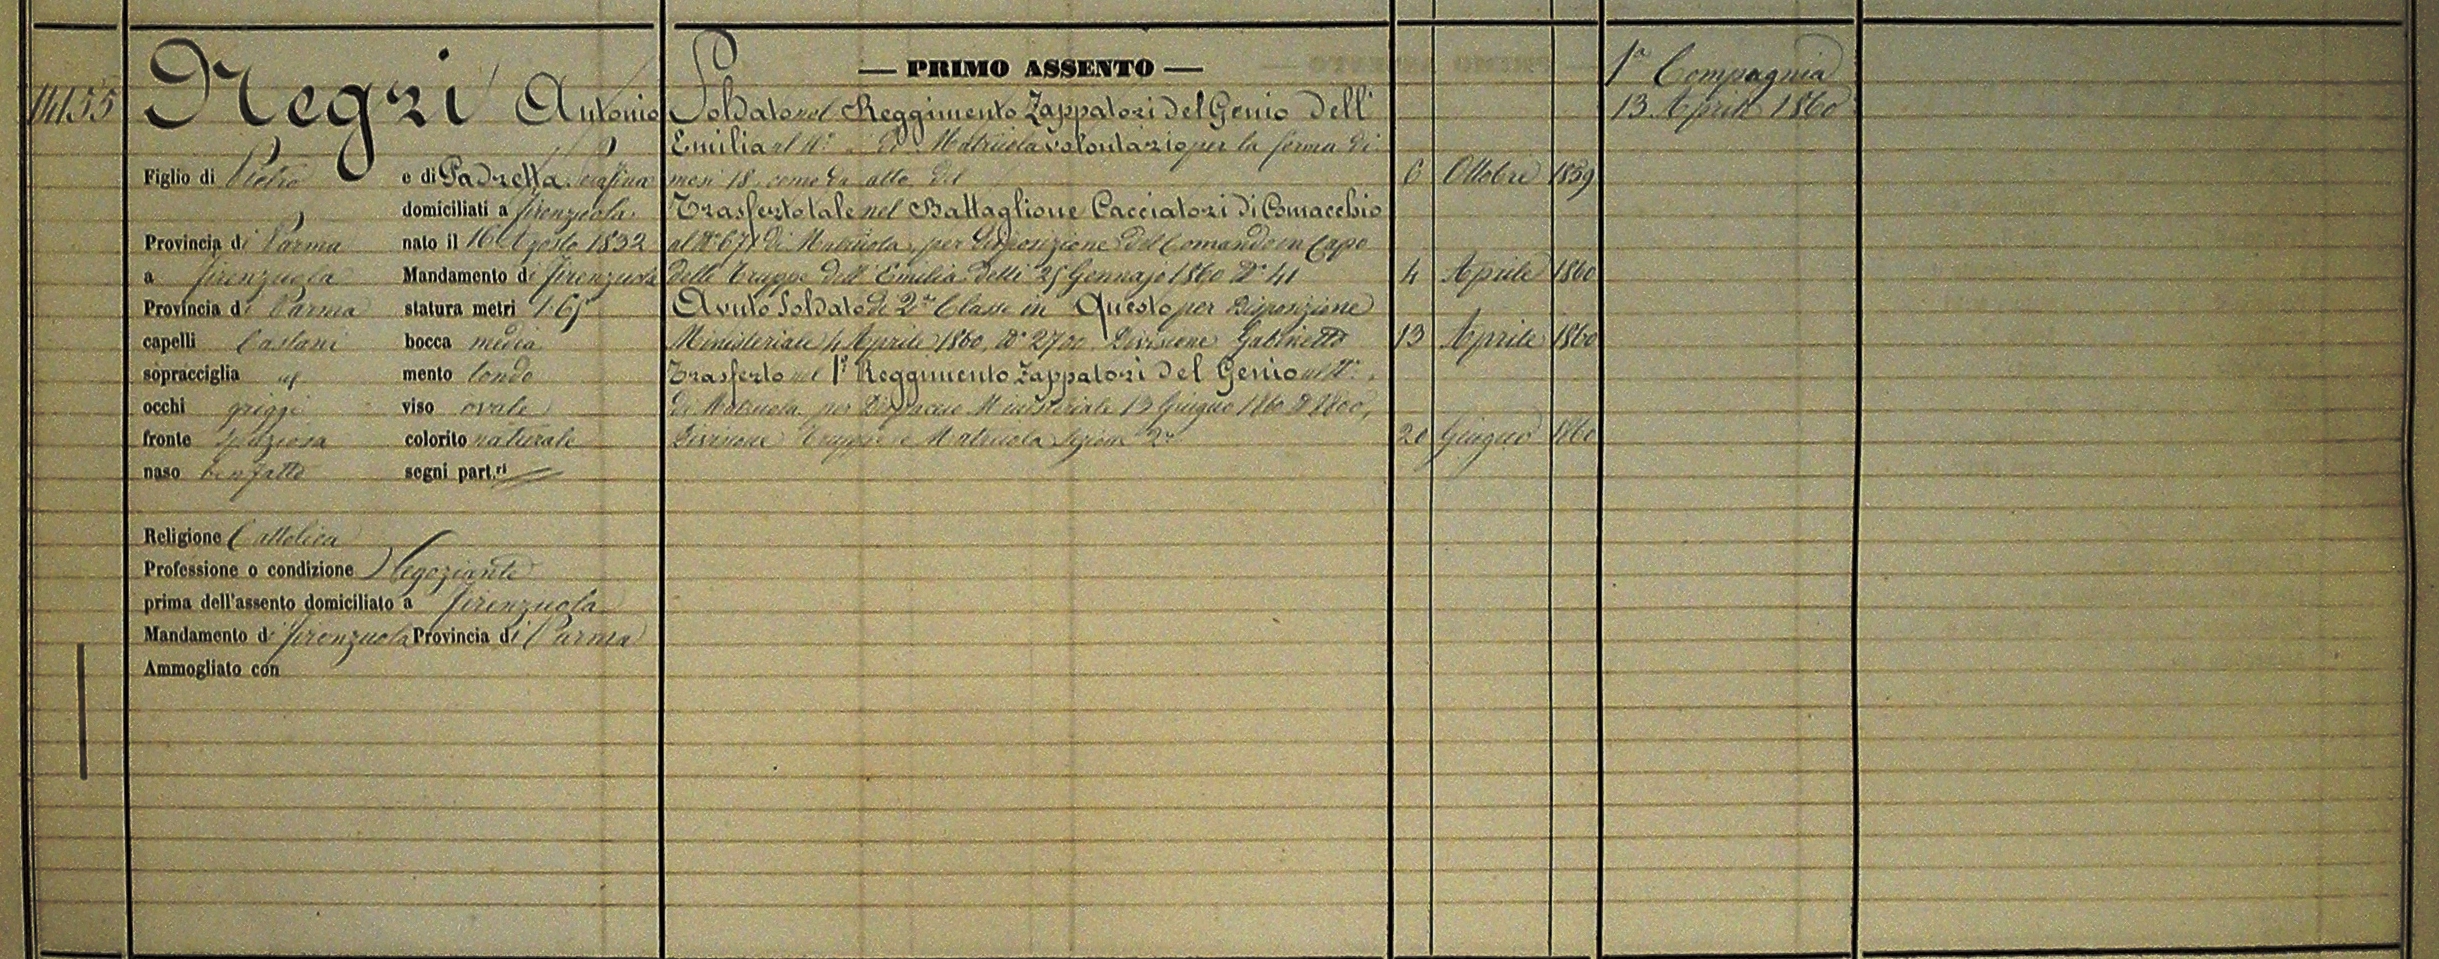 14155
Negri Antonio
Figlio di Pietro e di Padretta Serafina
domiciliati a firenzuola
Provincia di Parma nato il 16 Agosto 1832
a firenzuola Mandamento di firenzuola
Provincia di Parma statura metri 1.65
capelli Castani bocca media
sopracciglia id mento tondo
occhi griggi viso ovale
fronte spaziosa colorito naturale
naso benfatto segni part.ri
Religione Cattolica
Professione o condizione Negoziante
prima dell'assento domiciliato a firenzuola
Mandamento di firenzuola Provincia di Parma
Ammogliato con
— PRIMO ASSENTO —
Soldato nel Reggimento Zappatori del Genio dell'
Emilia al N° " di Matricola volontario per la ferma di
mesi 18, come da atto del 6 Ottobre 1859
Trasferto tale nel Battaglione Cacciatori di Comacchio
al N° 671 di Matricola, per disposizione del Comando in Capo
delle Truppe dell'Emilia delli 25 Gennajo 1860 N° 41 4 Aprile 1860
Avuto Soldato di 2a Classe in Questo per Disposizione
Ministeriale 4 Aprile 1860, N° 2700 Divisione Gabinetto 13 Aprile 1860
Trasferto nel 1° Reggimento Zappatori del Genio al N° "
di Matricola per Dispaccio Ministeriale 13 Giugno 1860 N° 8800,
Divisione Truppe e Matricola Sezione 2a 20 Giugno 1860
1a Compagnia
13 Aprile 1860